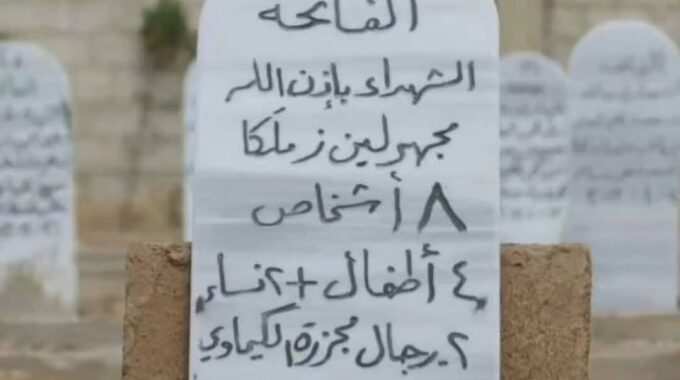 الفاتحة
الشهداء بإذن الله
مجهولين زملكا
٨ أشخاص
٤ أطفال + ٢ نساء
٢ رجال مجزرة الكيماوي